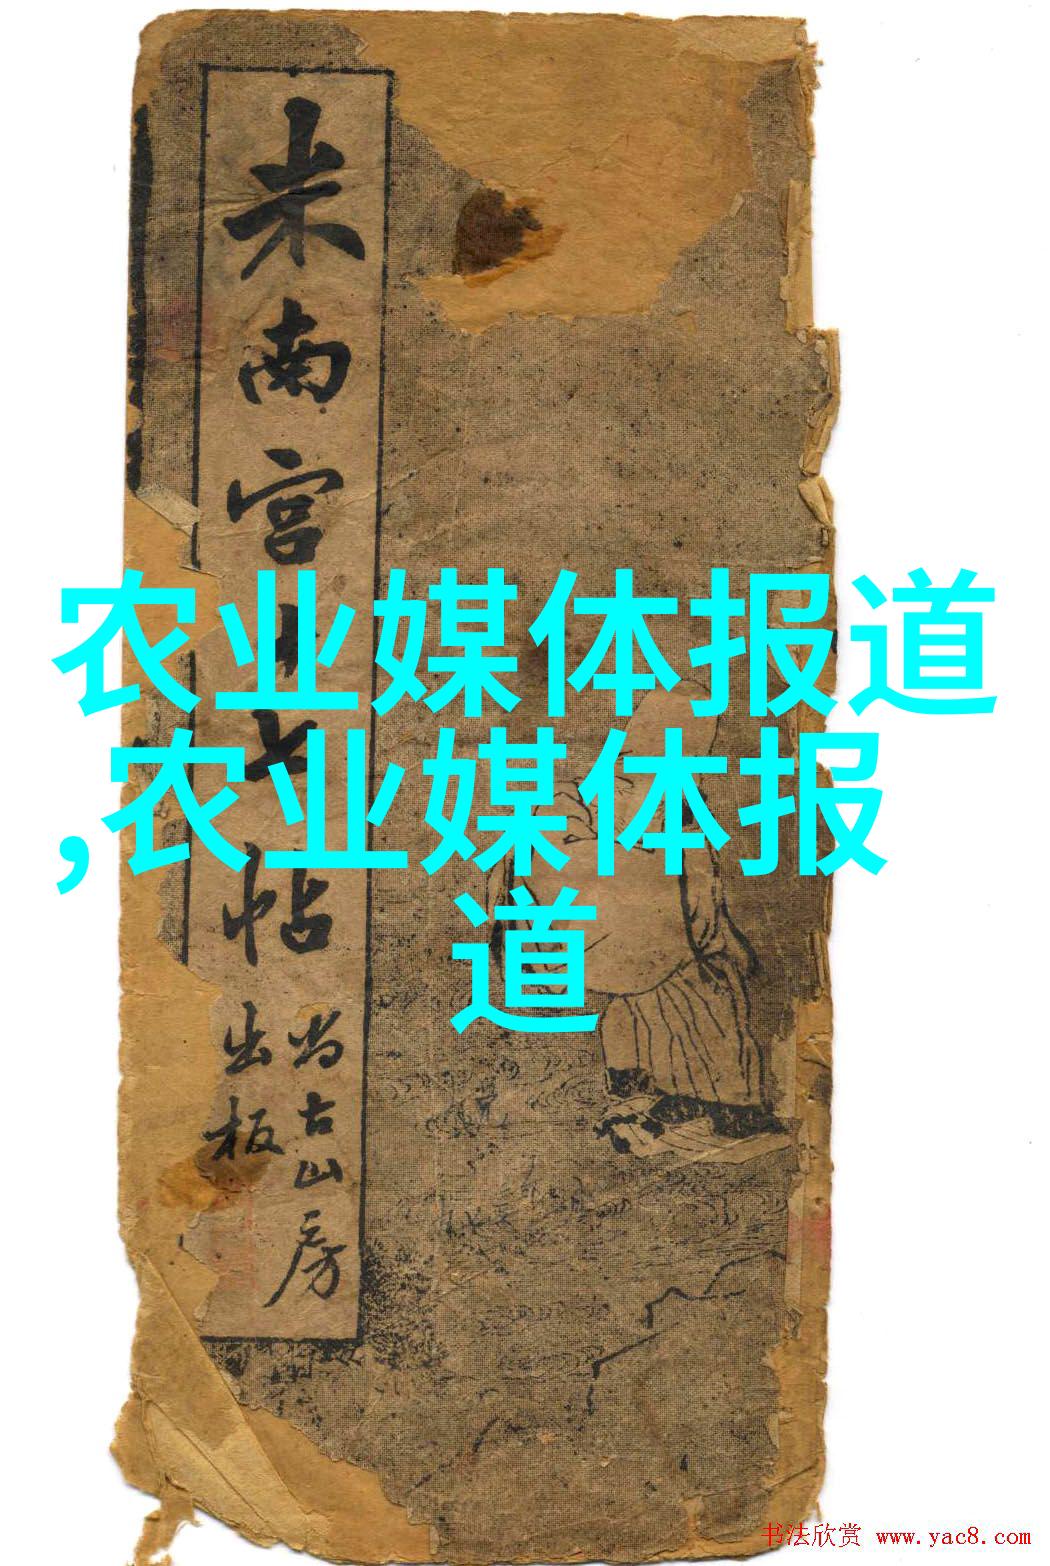 米南宫十七帖
尚古山房
出板
农业媒体报道
,农业媒体报
道
书法欣赏 www.yac8.com